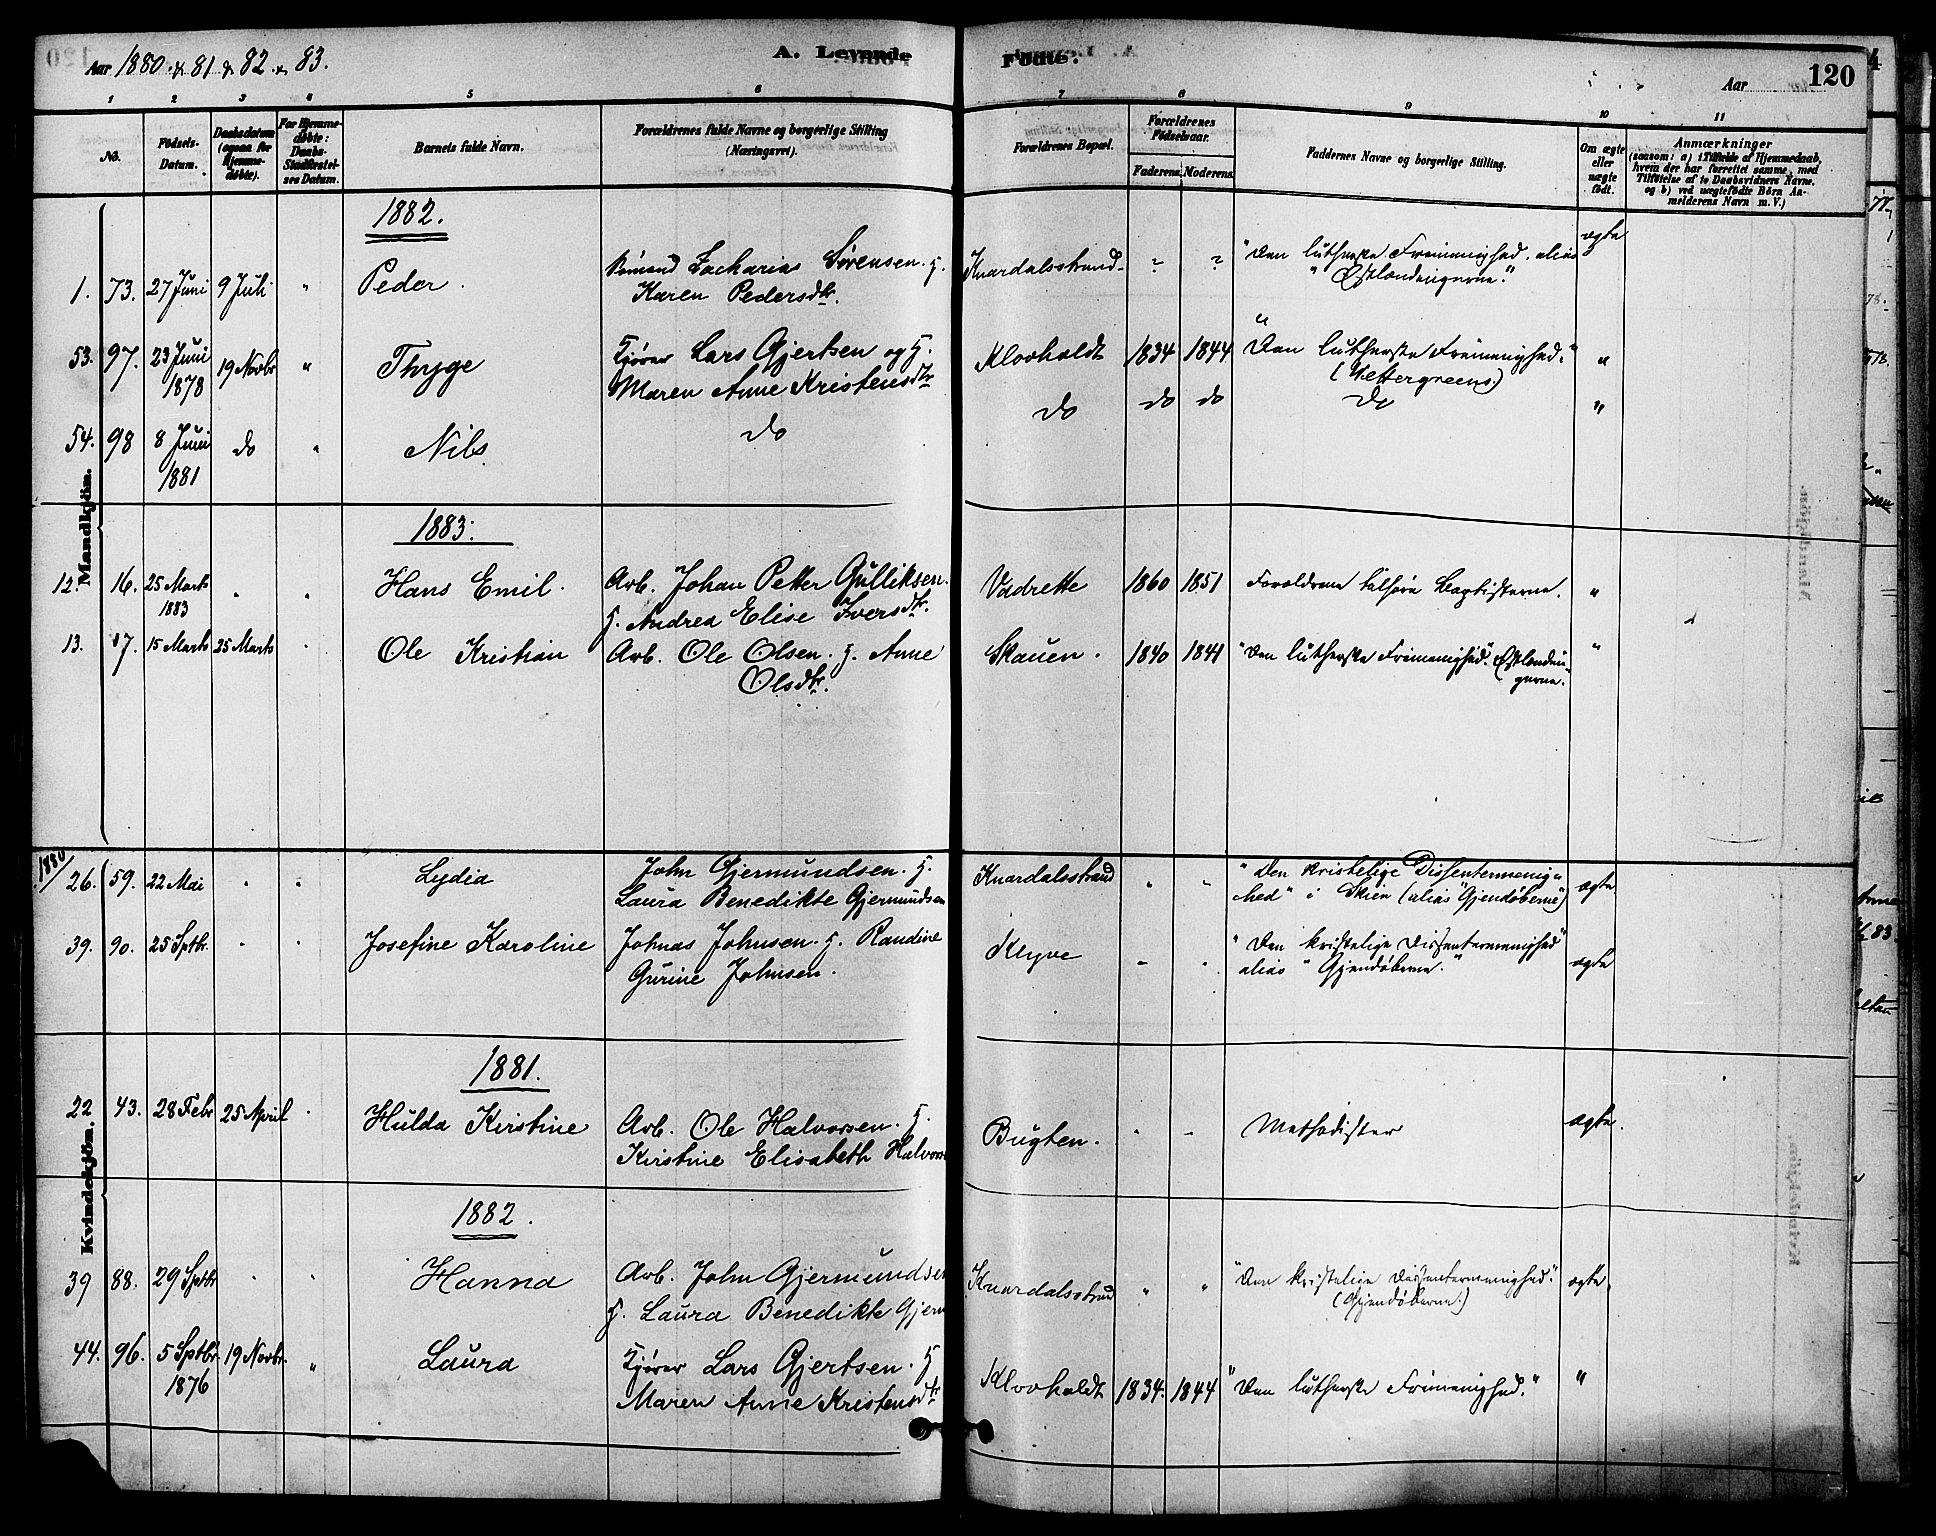 Aar 1880. & 81 & 82. & 83.
A. Levende Fødte.
Aar 120
1 2 3 4 5 6 7 8 9 10 11
No.
Fødsels-Datum.
Daabsdatum (ogsaa for Hjemmedøbte).
For Hjemmedøbte: Daabs-Stadfæstelses Datum.
Barnets fulde Navn.
Forældrenes fulde Navne og borgerlige Stilling (Næringsvei).
Forældrenes Bopæl.
Forældrenes Fødselsaar.
Faderens. Moderens.
Faddernes Navne og borgerlige Stilling.
Om ægte eller uægte født.
Anmærkninger
(saasom: a) i Tilfælde af Hjemmedaab, hvem der har forrettet samme, med Tilføielse af to Daabsvidners Navne, og b) ved uægtefødte Børn Anmelderens Navn m. V.)
Mandkjøn.
1882.
1. 73. 27 Juni 9 Juli " Peder. Sømand Zacharias Sørensen. H.
Karen Pedersdtr. Knardalsstrand ? ? "Den lutherske Frimenighed. alias
"Østlændingerne." ægte
53. 97. 23 Juni
1878 19 Novbr " Thyge Kjører Lars Gjertsen og H.
Maren Anne Kristensdtr Klovholdt 1834 1844 "Den lutherske Frimenighed."
(Wettergreens) "
54. 98 8 Juni
1881 do " Nils do do do do do "
1883.
12. 16. 25 Marts
1883 " " Hans Emil. Arb. Johan Petter Gulliksen.
H. Andrea Elise Iversdtr. Vadrette 1860 1851 Forældrene tilhøre Baptisterne. "
13. 17. 15 Marts 25 Marts " Ole Kristian Arb. Ole Olsen. H. Anne
Olsdtr. Skauen. 1840 1841 "Den lutherske Frimenighed". Østlændin-
gerne. "
Kvindekjøn.
1880
26. 59. 22 Mai " " Lydia John Gjermundsen. H.
Laura Benedikte Gjermundsen Knardalsstrand " " "Den kristelige Dissentermenig-
hed" i Skien (alias "Gjendøberne") ægte
39. 90. 25 Sptbr. " " Josefine Karoline Johnas Johnsen. H. Randine
Gurine Johnsen. Klyve " " "Den kristelige Dissentermenighed"
alias "Gjendøberne." ægte
1881.
22 43. 28 Febr 25 April " Hulda Kirstine Arb. Ole Halvorsen. H.
Kirstine Elisabeth Halvors Bugten. " " Methodister ægte.
1882.
39 88. 29 Sptbr " " Hanna Arb. John Gjermundsen
H. Laura Benedikte Gjerm Knardalsstrand " " "Den kristelige Dissentermenighed."
(Gjendøberne.) ægte
44. 96. 5 Sptbr
1876 19 Novbr. " Laura Kjører Lars Gjertsen. H
Maren Anne Kristensdtr Klovholdt 1834. 1844 "Den lutherske Frimenighed." "